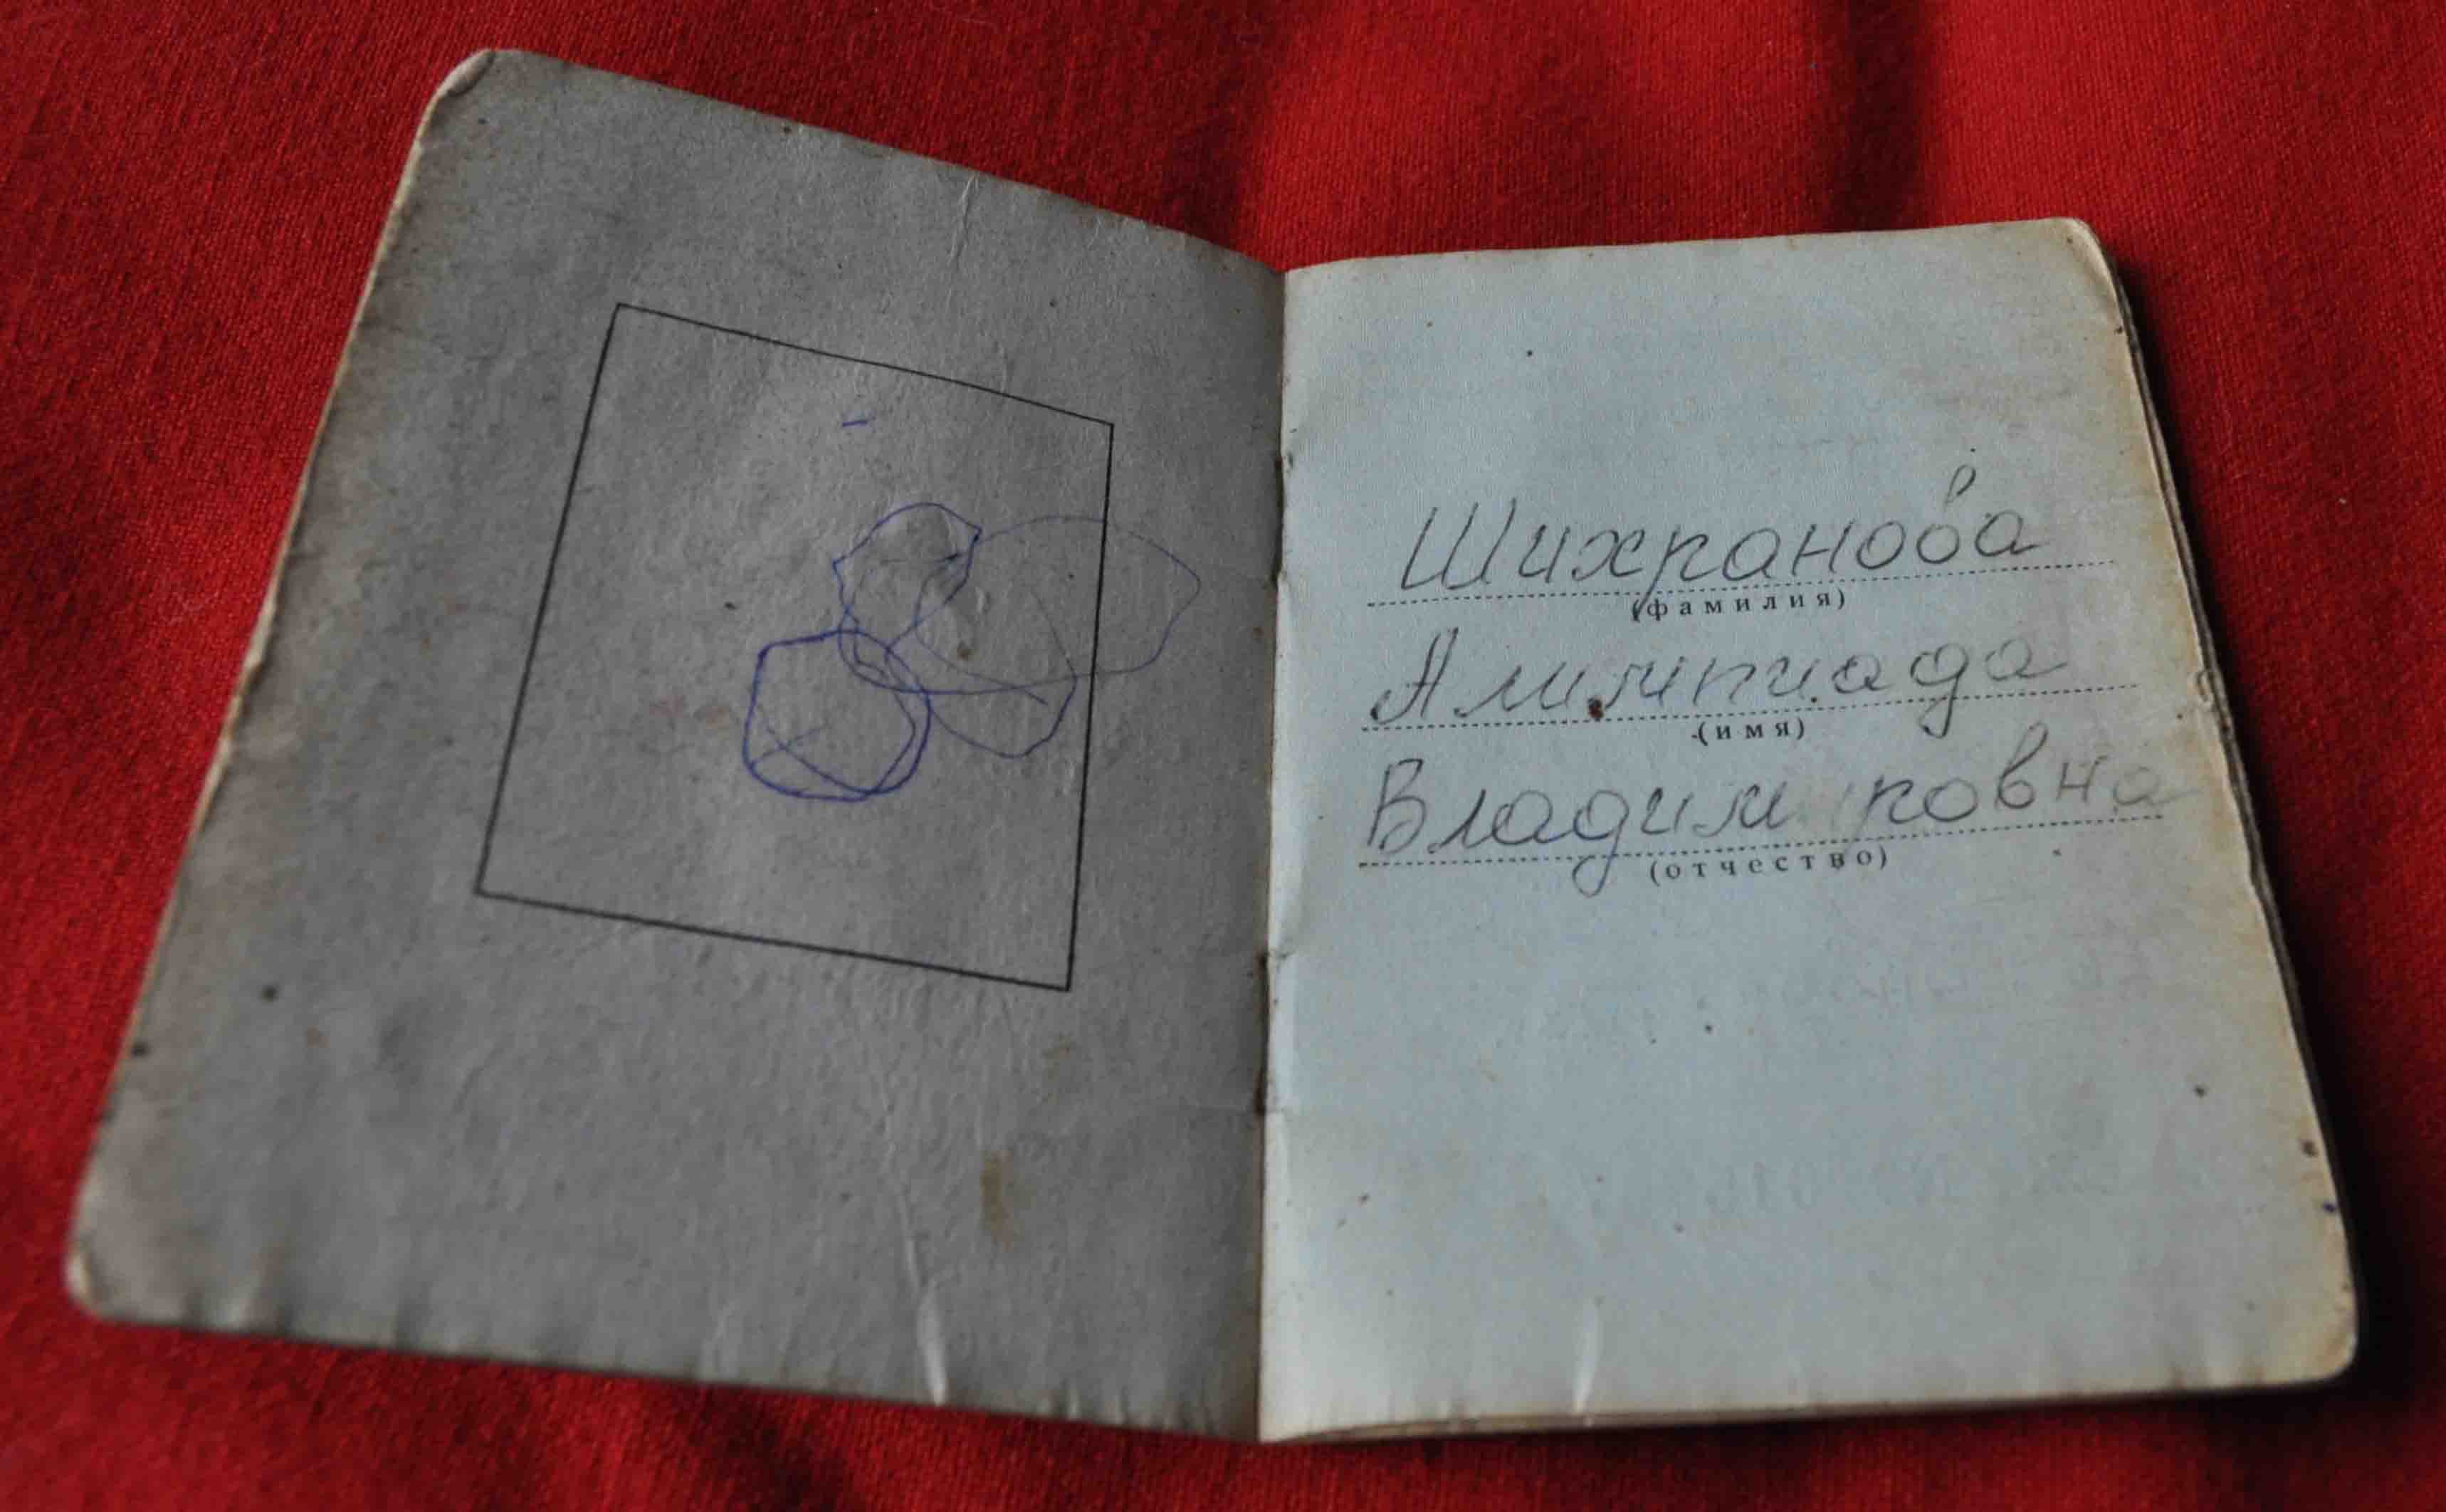 Шихранова
(фамилия)
Алимпиада
(имя)
Владим ровна
(отчество)